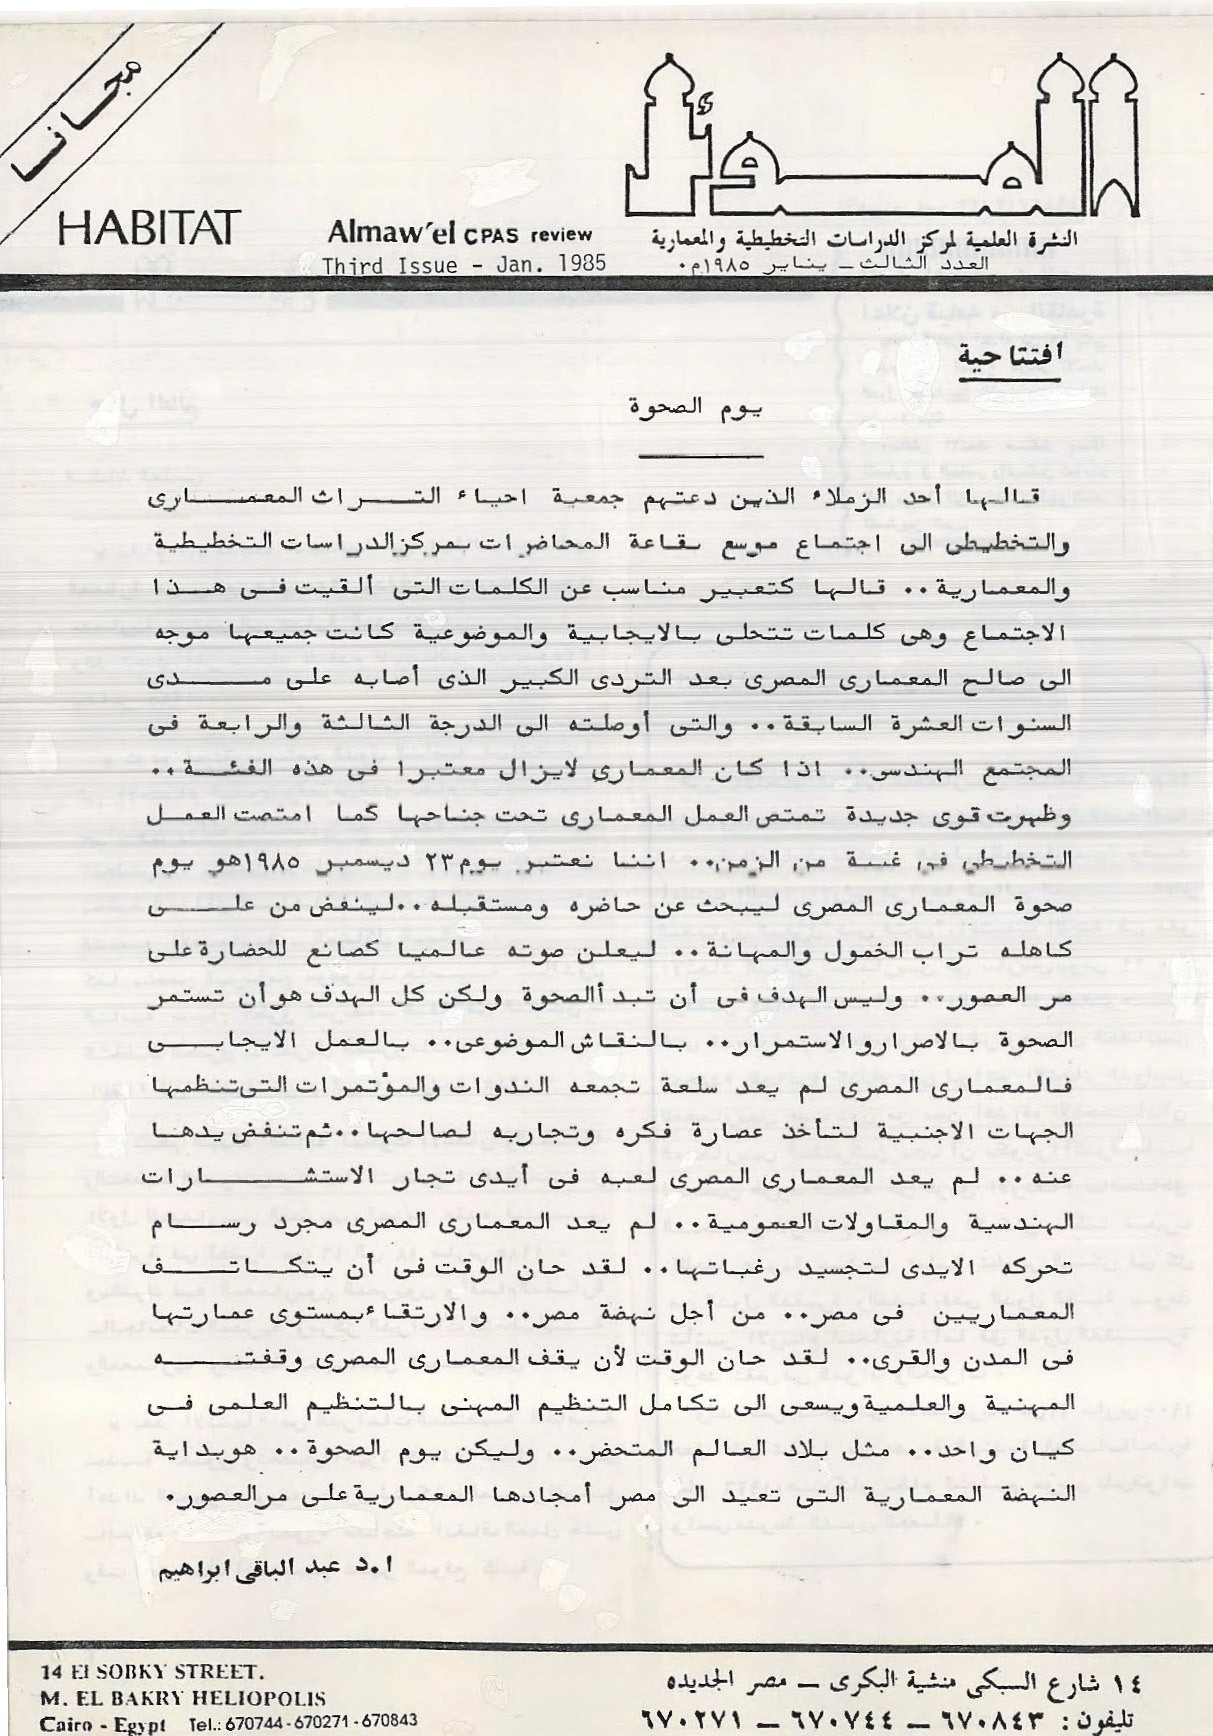 مجانا
الموئل
HABITAT
Almaw'el CPAS review
النشرة العلمية لمركز الدراسات التخطيطية والمعمارية
Third Issue - Jan. 1985
العدد الثالث ـ يناير ١٩٨٥م٠
افتتاحية
يوم الصحوة
قالها أحد الزملاء الذين دعتهم جمعية احياء التـــراث المعمــــارى
والتخطيطى الى اجتماع موسع بقاعة المحاضرات بمركز الدراسات التخطيطية
والمعمارية٠٠ قالها كتعبير مناسب عن الكلمات التى ألقيت فى هــذا
الاجتماع وهى كلمات تتحلى بالايجابية والموضوعية كانت جميعها موجه
الى صالح المعمارى المصرى بعد التردى الكبير الذى أصابه على مــدى
السنوات العشرة السابقة٠٠ والتى أوصلته الى الدرجة الثالثة والرابعة فى
المجتمع الهندسى٠٠ اذا كان المعمارى لايزال معتبرا فى هذه الفئـــة٠٠
وظهرت قوى جديدة تمتص العمل المعمارى تحت جناحها كما امتصت العمل
التخطيطى فى غيبة من الزمن٠٠ اننا نعتبر يوم ٢٣ ديسمبر ١٩٨٥ هو يوم
صحوة المعمارى المصرى ليبحث عن حاضره ومستقبله ٠٠لينفض من علـــى
كاهله تراب الخمول والمهانة٠٠ ليعلن صوته عالميا كصانع للحضارة على
مر العصور٠٠ وليس الهدف فى أن تبدأ الصحوة ولكن كل الهدف هو أن تستمر
الصحوة بالاصرار والاستمرار٠٠ بالنقاش الموضوعى٠٠ بالعمل الايجابــى
فالمعمارى المصرى لم يعد سلعة تجمعه الندوات والمؤتمرات التى تنظمها
الجهات الاجنبية لتأخذ عصارة فكره وتجاربه لصالحها٠٠ثم تنفض يدهــا
عنه٠٠ لم يعد المعمارى المصرى لعبه فى أيدى تجار الاستشــــــارات
الهندسية والمقاولات العمومية٠٠ لم يعد المعمارى المصرى مجرد رســـام
تحركه الايدى لتجسيد رغباتها٠٠ لقد حان الوقت فى أن يتكــاتـــف
المعماريين فى مصر٠٠ من أجل نهضة مصر٠٠ والارتقاء بمستوى عمارتها
فى المدن والقرى٠٠ لقد حان الوقت لأن يقف المعمارى المصرى وقفتـــه
المهنية والعلمية ويسعى الى تكامل التنظيم المهنى بالتنظيم العلمى فــى
كيان واحد٠٠ مثل بلاد العالم المتحضر٠٠ وليكن يوم الصحوة٠٠ هو بداية
النهضة المعمارية التى تعيد الى مصر أمجادها المعمارية على مر العصور٠
ا.د عبد الباقى ابراهيم
14 El SOBKY STREET.
M. EL BAKRY HELIOPOLIS
Cairo - Egypt Tel.: 670744-670271-670843
١٤ شارع السبكى منشية البكرى ـ مصر الجديده
تليفون: ٦٧٠٨٤٣ ـ ٦٧٠٧٤٤ ـ ٦٧٠٢٧١